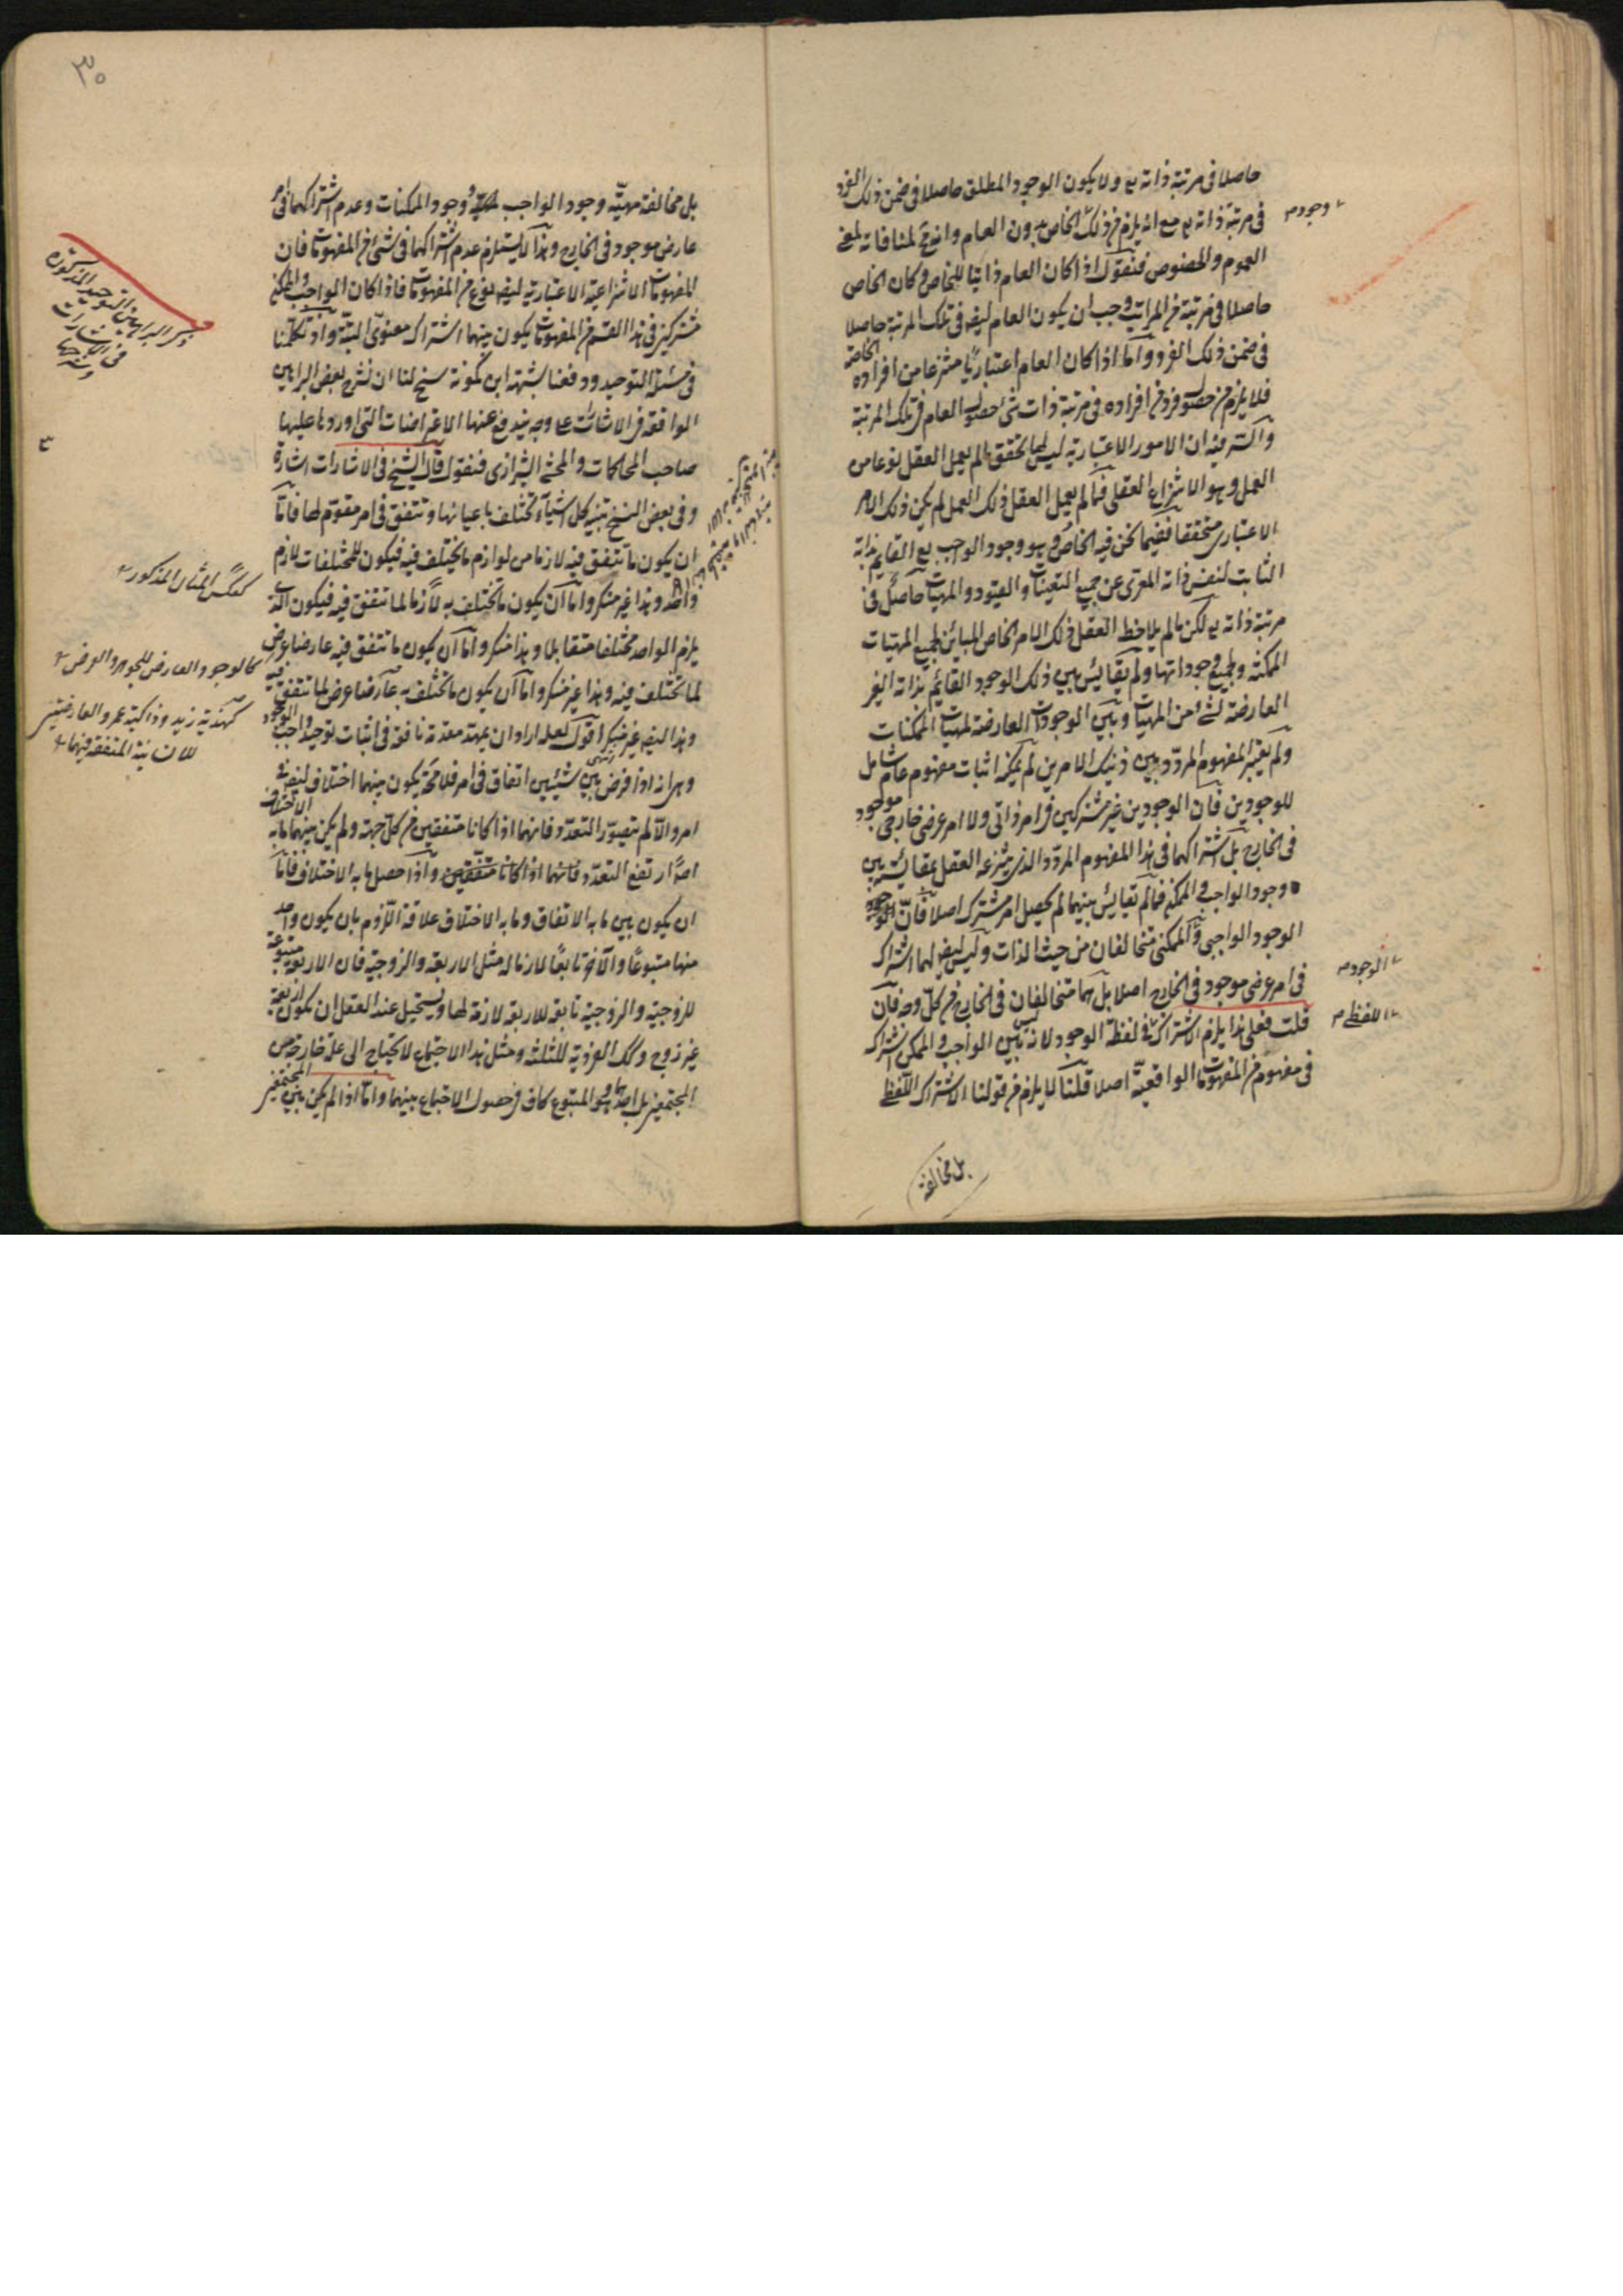 حاصلا فى مرتبة ذاته تع ولا يكون الوجود المطلق حاصلا فى ضمن ذلك الفرد
فى مرتبة ذاته تع مع انه يلزم من ذلك الخاص بدون العام وانه مح لمنافاته لمعنى
العموم والخصوص فنقول اذا كان العام ذاتيا للخاص وكان الخاص
حاصلا فى مرتبة من المراتب وجب ان يكون العام ايضا فى تلك المرتبة حاصلا
فى ضمن ذلك الفرد واما اذا كان العام اعتباريا منتزعا من افراده الخاصة
فلا يلزم من حصول فرد من افراده فى مرتبة ذات شئ حصول العام فى تلك المرتبة
والسر فيه ان الامور الاعتبارية ليس لها تحقق ما لم يعمل العقل نوعا من
العمل وهو الانتزاع العقلى فما لم يعمل العقل ذلك العمل لم يكن ذلك الامر
الاعتبارى متحققا ففيما نحن فيه الخاص وهو وجود الواجب تع القايم بذاته
الثابت لنفس ذاته المعرى عن جميع التعينات والقيود والمهيات حاصل فى
مرتبة ذاته تع لكن ما لم يلاحظ العقل ذلك الامر الخاص المباين لجميع المهيات
الممكنة ولجميع وجوداتها ولم يقايس بين ذلك الوجود القائم بذاته الغير
العارضة لشئ من المهيات وبين الوجودات العارضة لمهيات الممكنات
ولم يعتبر المفهوم المردد بين ذينك الامرين لم يمكنه اثبات مفهوم عام شامل
للوجودين فان الوجودين غير مشتركين فى امر ذاتى ولا امر عرضى خارجى موجود
فى الخارج بل اشتراكهما فى هذا المفهوم المردد الذى ينتزعه العقل بمقايسته بين
وجود الواجب والممكن فما لم تقايس بينهما لم يحصل امر مشترك اصلا فان الوجود
الوجود الواجبى والممكنى متخالفان من حيث الذات وليس ايضا لهما اشتراك
فى امر عرضى موجود فى الخارج اصلا بل هما متخالفان فى الخارج من كل وجه فان
قلت فعلى هذا يلزم الاشتراك فى لفظة الوجود لانه ليس بين الواجب والممكن اشتراك
فى مفهوم من المفهومات الواقعية اصلا قلنا لا يلزم من قولنا الاشتراك اللفظى
وجود م
الوجود م
اللفظى م
بل مخالفة
٣٠
بل مخالفة مهية وجود الواجب لمهية وجود الممكنات وعدم اشتراكهما فى امر
عارض موجود فى الخارج وهذا لا يستلزم عدم اشتراكهما فى شئ من المفهومات فان
المفهومات الانتزاعية الاعتبارية ايضا نوع من المفهومات فاذا كان الواجب والممكن
مشتركين فى هذا القسم من المفهومات يكون بينهما اشتراك معنوى البتة واذ تكلمنا
فى مسئلة التوحيد ودفعنا شبهة ابن كمونة سنح لنا ان نشرح بعض البراهين
الواقعة فى الاشارات على وجه يندفع عنها الاعتراضات التى اوردها عليها
صاحب المحاكمات والمحشى الشيرازى فنقول قال الشيخ فى الاشارات اشارة
وفى بعض النسخ تنبيه كل اشياء تختلف باعيانها وتتفق فى امر مقوم لها فاما
ان يكون ما تتفق فيه لازما من لوازم ما يختلف فيه فيكون للمختلفات لازم
واحد وهذا غير منكر واما ان يكون ما تختلف به لازما لما تتفق فيه فيكون الذى
يلزم الواحد مختلفا متقابلا وهذا منكر واما ان يكون ما تتفق فيه عارضا عرض
لما تختلف فيه وهذا غير منكر واما ان يكون ما تختلف به عارضا عرض لما تتفق فيه
وهذا ايضا غير منكر اقول لعله اراد ان يمهد مقدمة نافعة فى اثبات توحيد واجب الوجود
وهى انه اذا فرض بين شيئين اتفاق فى امر فلا محة يكون بينهما اختلاف ايضا فى
امر والا لم يتصور التعدد فانهما اذا كانا متفقين من كل جهة ولم يكن بينهما ما به الاختلاف
اصلا ارتفع التعدد فانهما اذا كانا متفقين واذا حصل ما به الاختلاف فاما
ان يكون بين ما به الاتفاق وما به الاختلاف علاقة اللزوم بان يكون واحد
منها متبوعا والآخر تابعا لازما له مثل الاربعة والزوجية فان الاربعة متبوعة
للزوجية والزوجية تابعة للاربعة لازمة لها ويستحيل عند العقل ان تكون اربعة
غير زوج وكذلك الفردية للثلثة ومثل هذا الاجتماع لا يحتاج الى علة خارجة من
المجتمعين بل احدهما وهو المتبوع كاف فى حصول الاجتماع بينهما واما اذا لم يكن بين المجتمعين
ذكر البراهين التوحيد المذكورة
فى الاشارات
وشرحها
كعكس المثال المذكور
كالوجود العارض للجوهر والعرض
كهذية زيد وذاكية عمرو العارضتين
للانسانية المتفقة فيهما